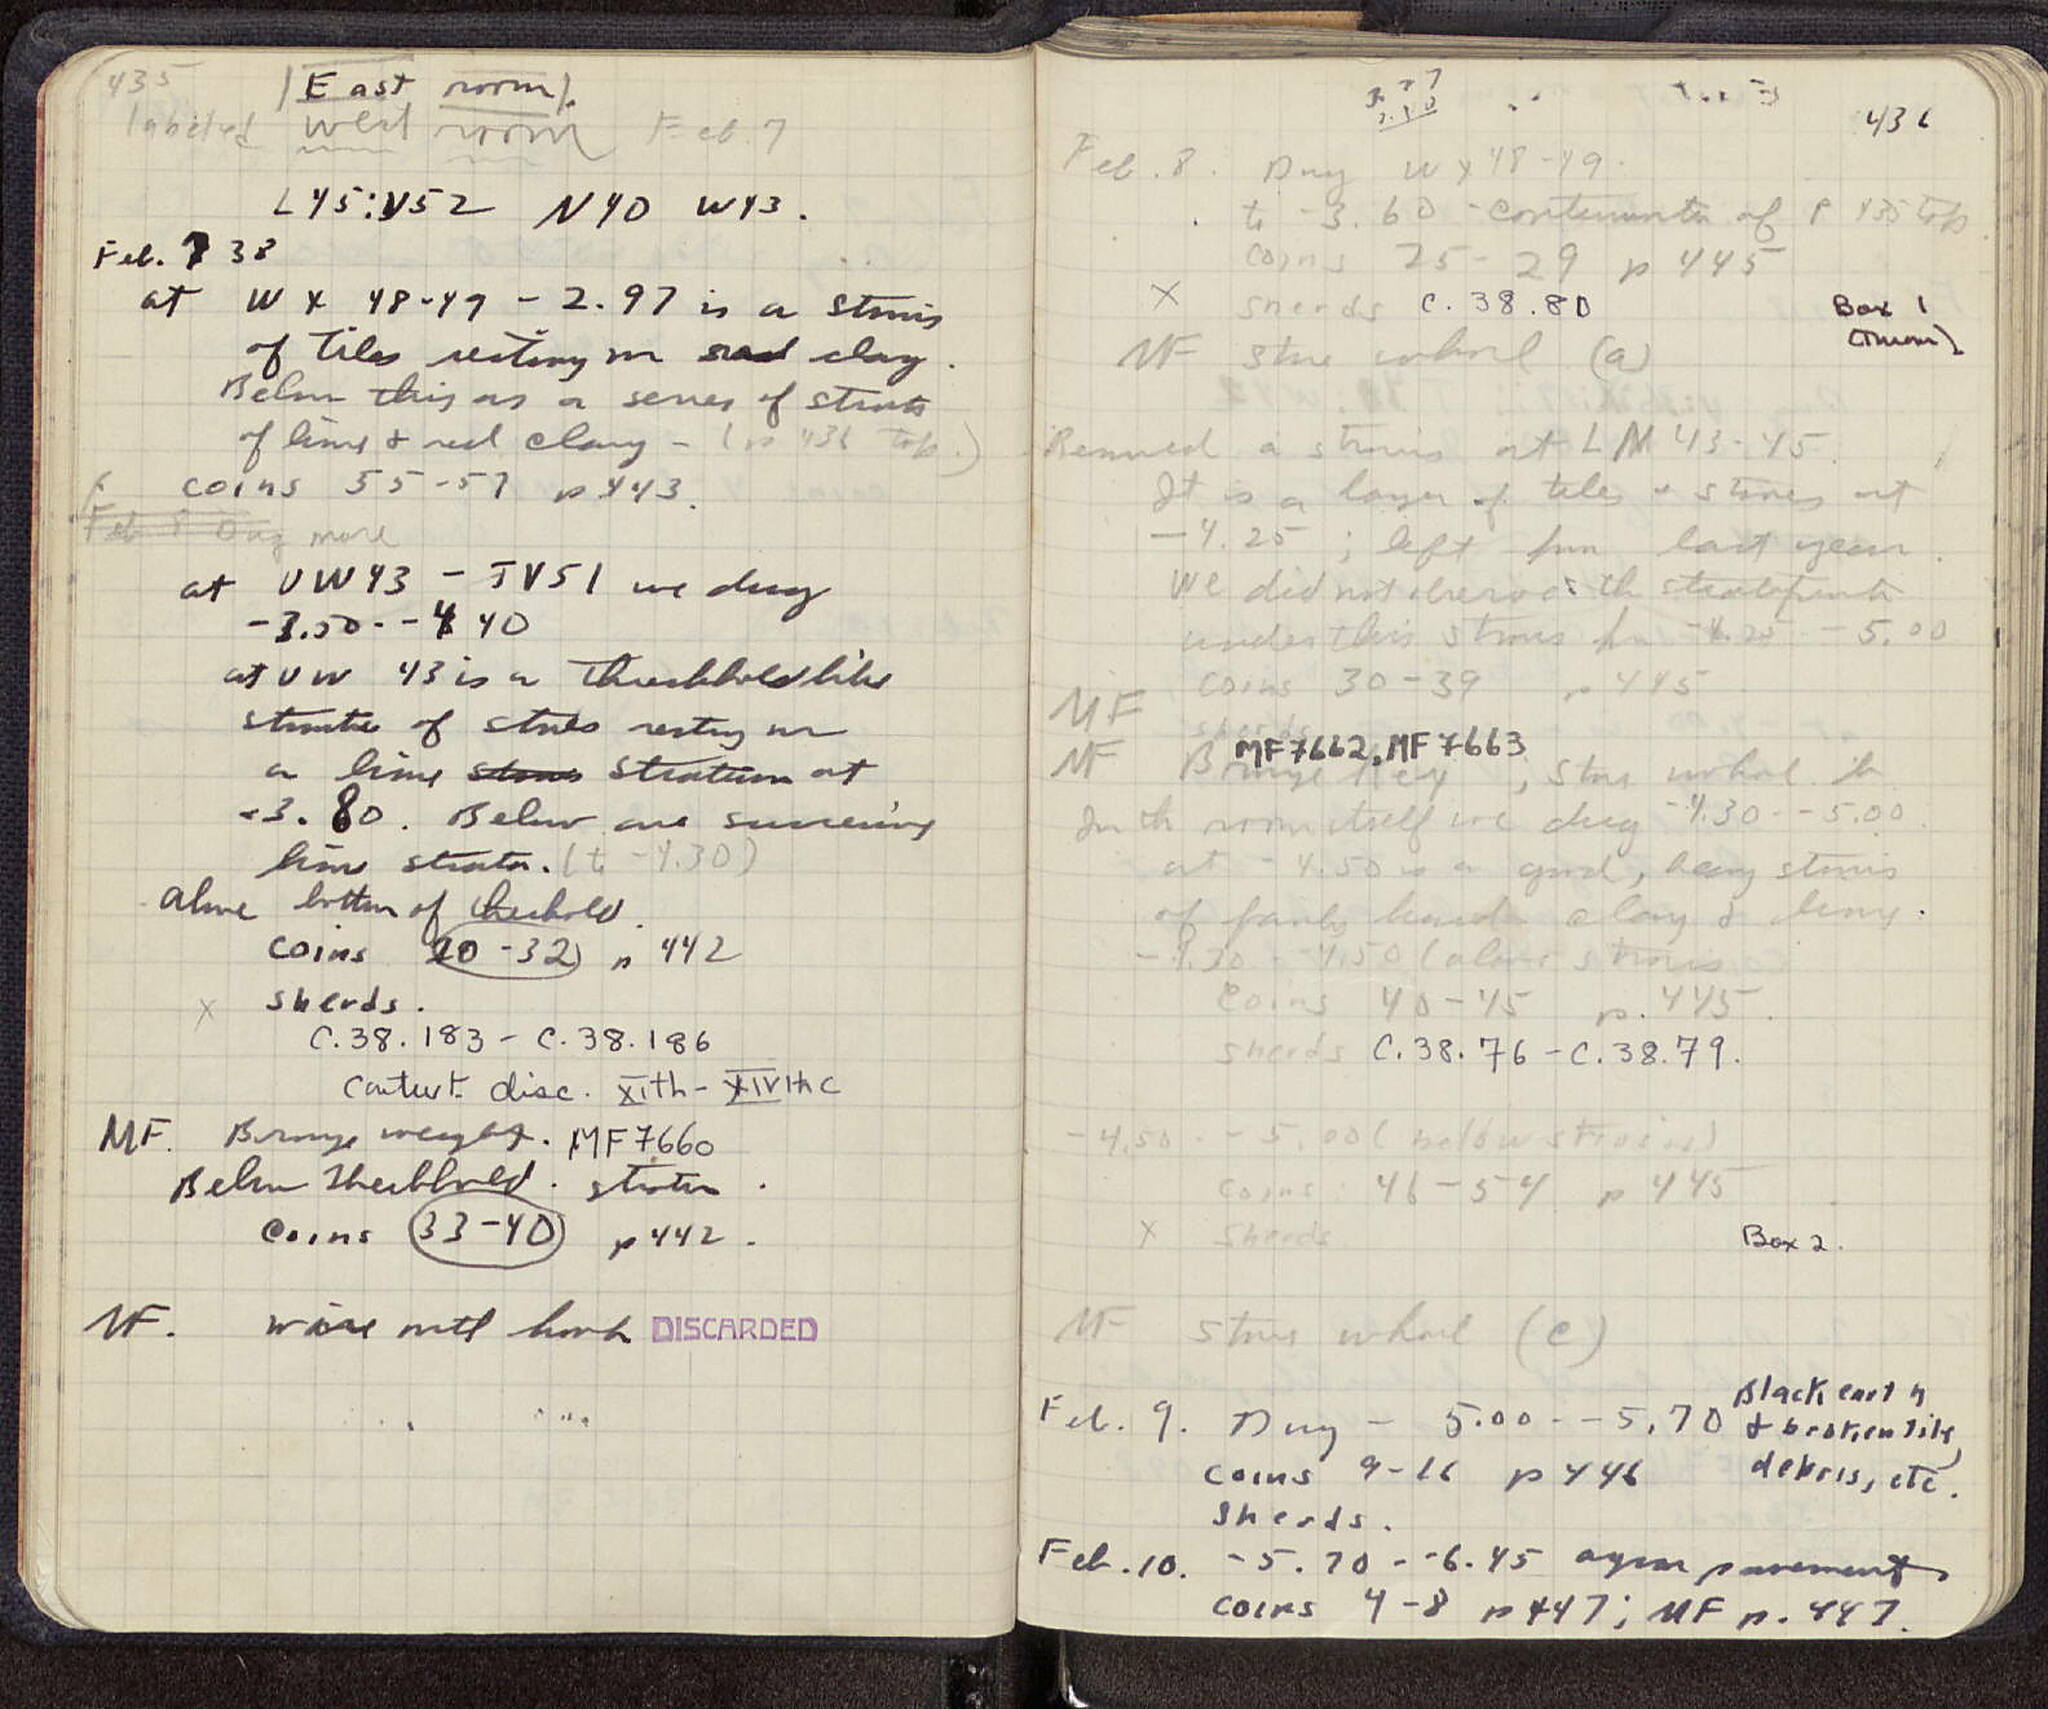 435
(East room).
labeled west room Feb. 7
L45:V52 N40 W43.
Feb. 7 38
at WX 48-49 - 2.97 is a stosis
of tiles resting on red clay.
Below this is a series of strata
of lime & red clay - (p 436 top.)
x coins 55-57 p 443.
Feb 8 Dug more
at UW43 - TV51 we dug
-3.50 - -4 40
at UW 43 is a threshhold like
of stones resting on
a lime stratum at
-3.80. Below are successive
lime strata. (to -4.30)
Above bottom of threshold.
coins 20-32 p 442
x sherds.
C.38.183 - C.38.186
Context disc. XIth - XIVth C
MF. Bronze weight. MF7660
Below threshhold. strata.
coins 33-40 p 442.
MF. wire with hook DISCARDED
436
Feb. 8. Dug WX 48-49.
to -3.60 - continuation of P 435 top
coins 25-29 p 445
x sherds C.38.80 Box 1
MF stone whorl (a)
Removed a stosis at LN 43-45.
It is a layer of tiles & stones at
-4.25; left from last year.
We did not observe the
under this stosis from -4.25 - -5.00
coins 30-39 p 445
MF sherds
MF7662, MF7663
MF Bronze key, stone whorl b
In the room itself we dug -4.30 - -5.00.
at -4.50 is a good, heavy stosis
of fairly hard clay & lime.
-4.30 - -4.50 (above stosis
coins 40-45 p. 445.
sherds C.38.76 - C.38.79.
-4.50 - -5.00 (below stosis)
coins 46-54 p 445
x sherds Box 2.
MF stone whorl (c)
Feb. 9. Dug - 5.00 - -5.70 Black earth
& broken tile,
debris, etc.
coins 9-16 p 446
sherds.
Feb. 10. -5.70 - -6.45 agora pavement
coins 4-8 p 447; MF p. 447.